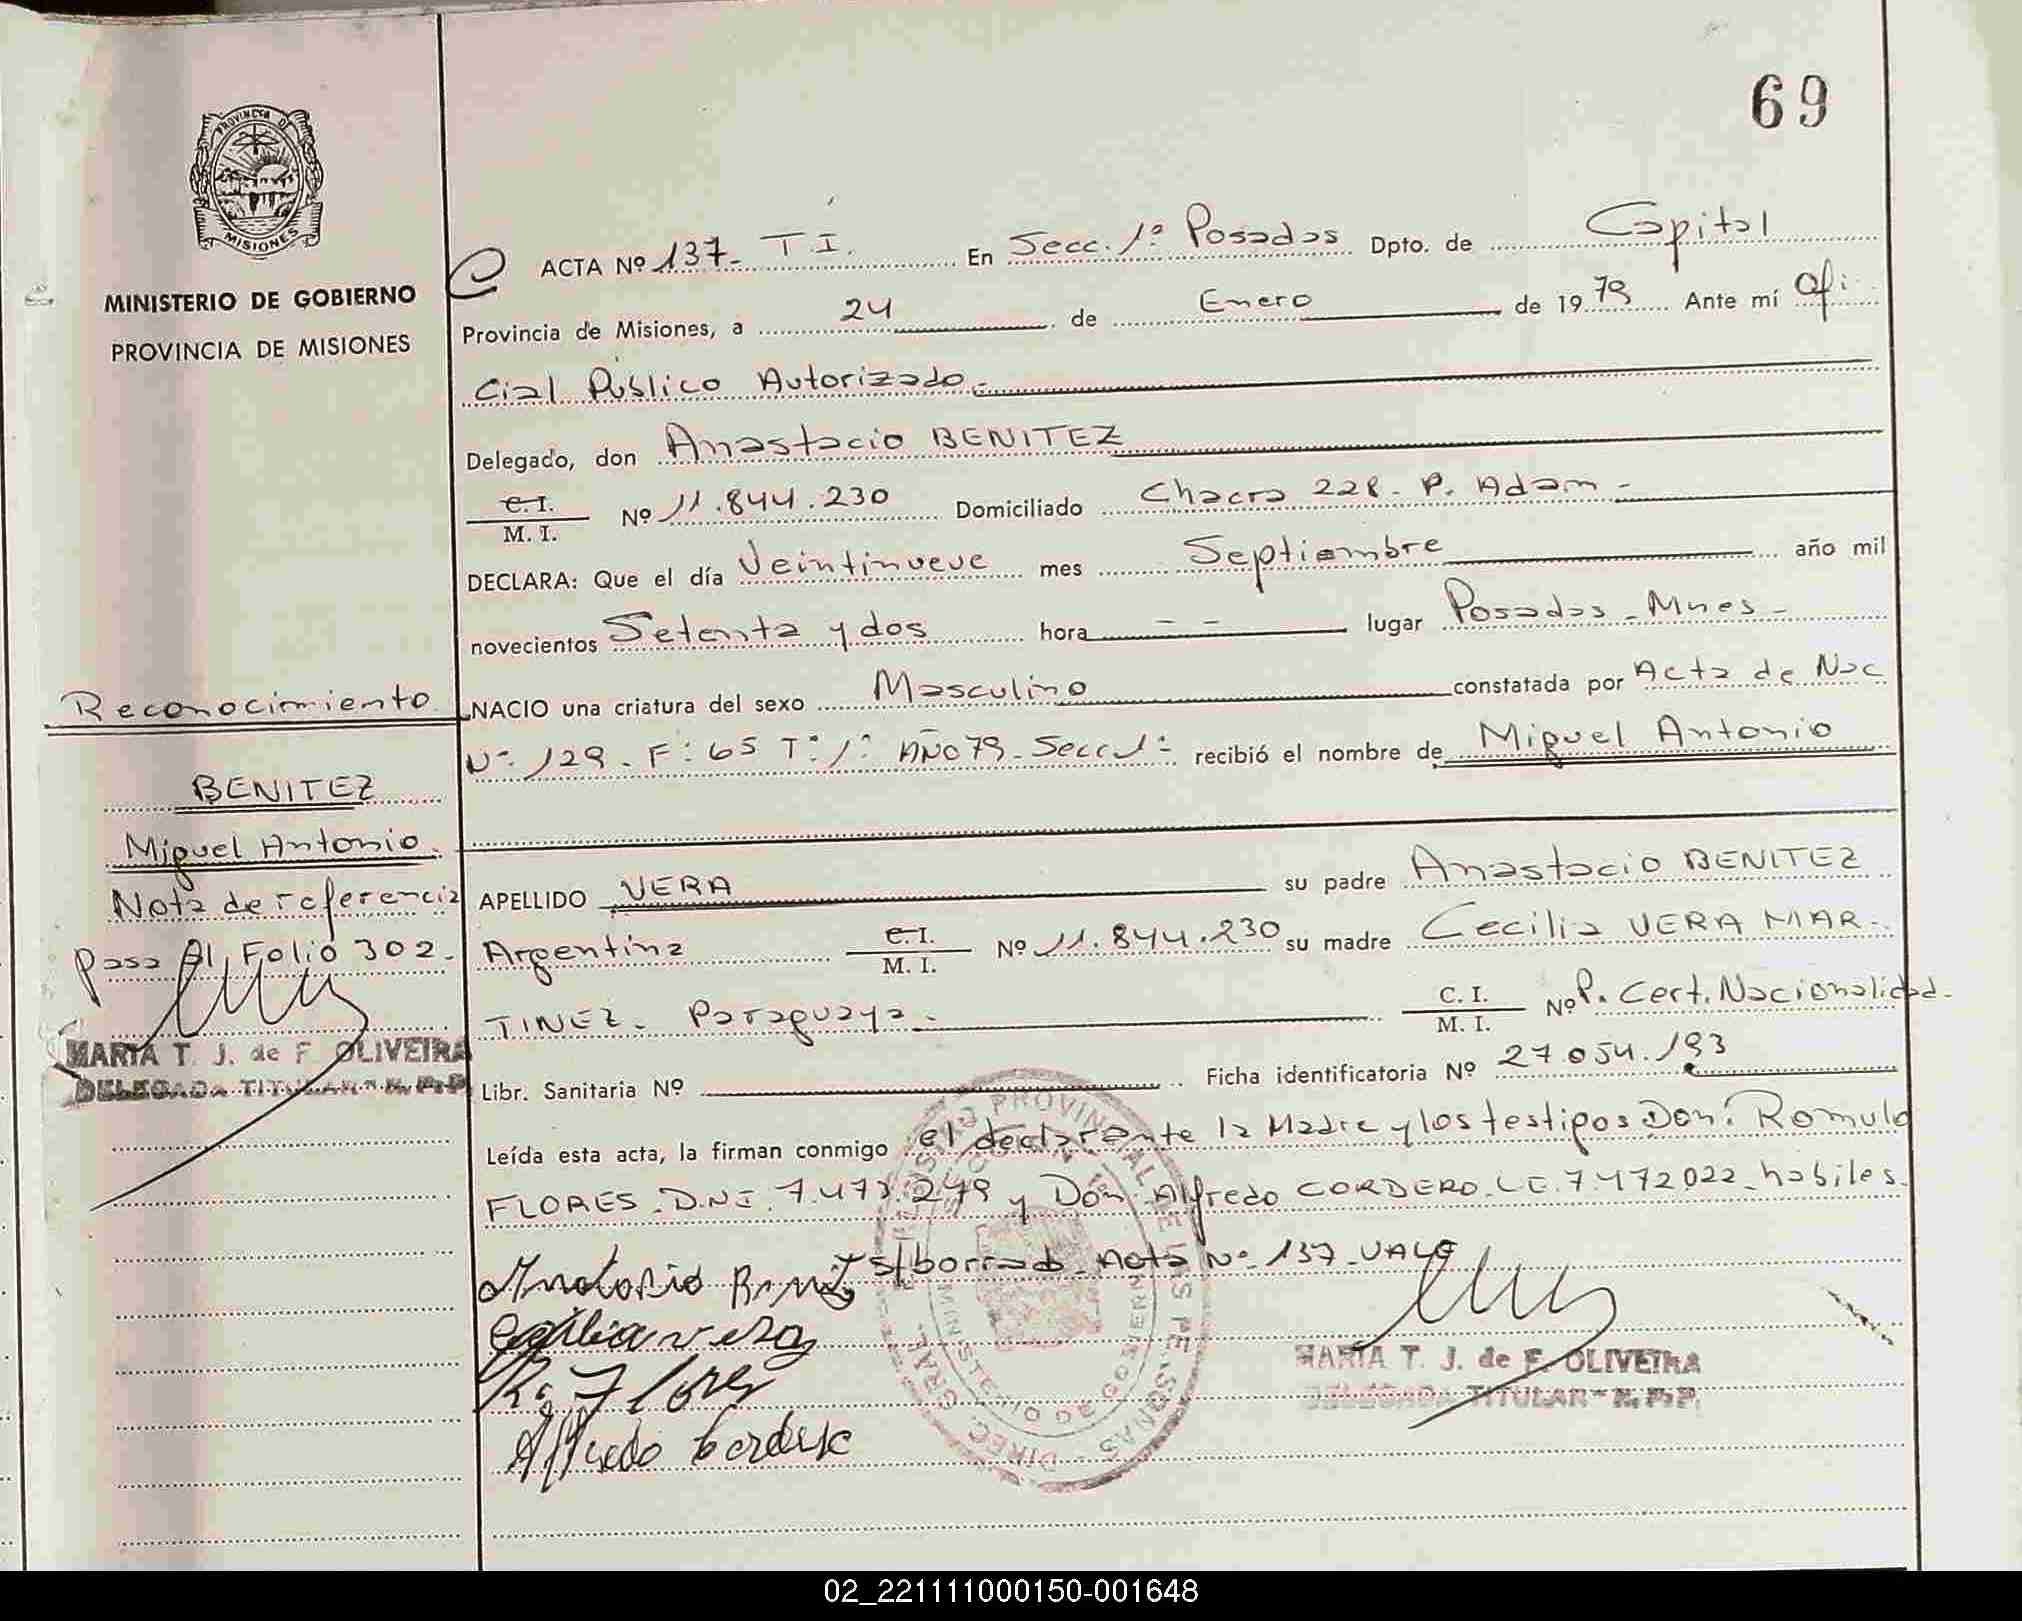 69
PROVINCIA DE
MISIONES
MINISTERIO DE GOBIERNO
PROVINCIA DE MISIONES
ACTA Nº 137- T.I. En Secc. 1º Posadas Dpto. de Capital
Provincia de Misiones, a 24 de Enero de 1979 Ante mí Ofi
cial Público Autorizado.-
Delegado, don Anastacio BENITEZ
C.I.
M. I. Nº 11.844.230 Domiciliado Chacra 228- P. Adam -
DECLARA: Que el día Veintinueve mes Septiembre año mil
novecientos Setenta y dos hora - - lugar Posadas - Mnes -
NACIO una criatura del sexo Masculino constatada por Acta de Nac
Nº 129 - F: 65 Tº 1º AÑO 79 - Secc 1º recibió el nombre de Miguel Antonio
APELLIDO VERA su padre Anastacio BENITEZ
Argentina C.I.
M. I. Nº 11.844.230 su madre Cecilia VERA MAR-
TINEZ - Paraguaya - C. I.
M. I. Nº P. Cert. Nacionalidad-
Libr. Sanitaria Nº Ficha identificatoria Nº 27.054.193
Leída esta acta, la firman conmigo el declarante la Madre y los testigos Don: Romulo
FLORES - D.N.I. 7.473.279 y Don Alfredo CORDERO - LE. 7472022 - habiles -
S/borrado - Acta Nº 137 - VALE
Cecilia vera
R. Flores
Alfredo Cordero
MARIA T. J. de F. OLIVEIRA
DELEGADA TITULAR - R. P. P.
Reconocimiento
BENITEZ
Miguel Antonio.
Nota de referencia
Pasa Al Folio 302-
MARIA T. J. de F. OLIVEIRA
DELEGADA TITULAR - R. P. P.
02_221111000150-001648